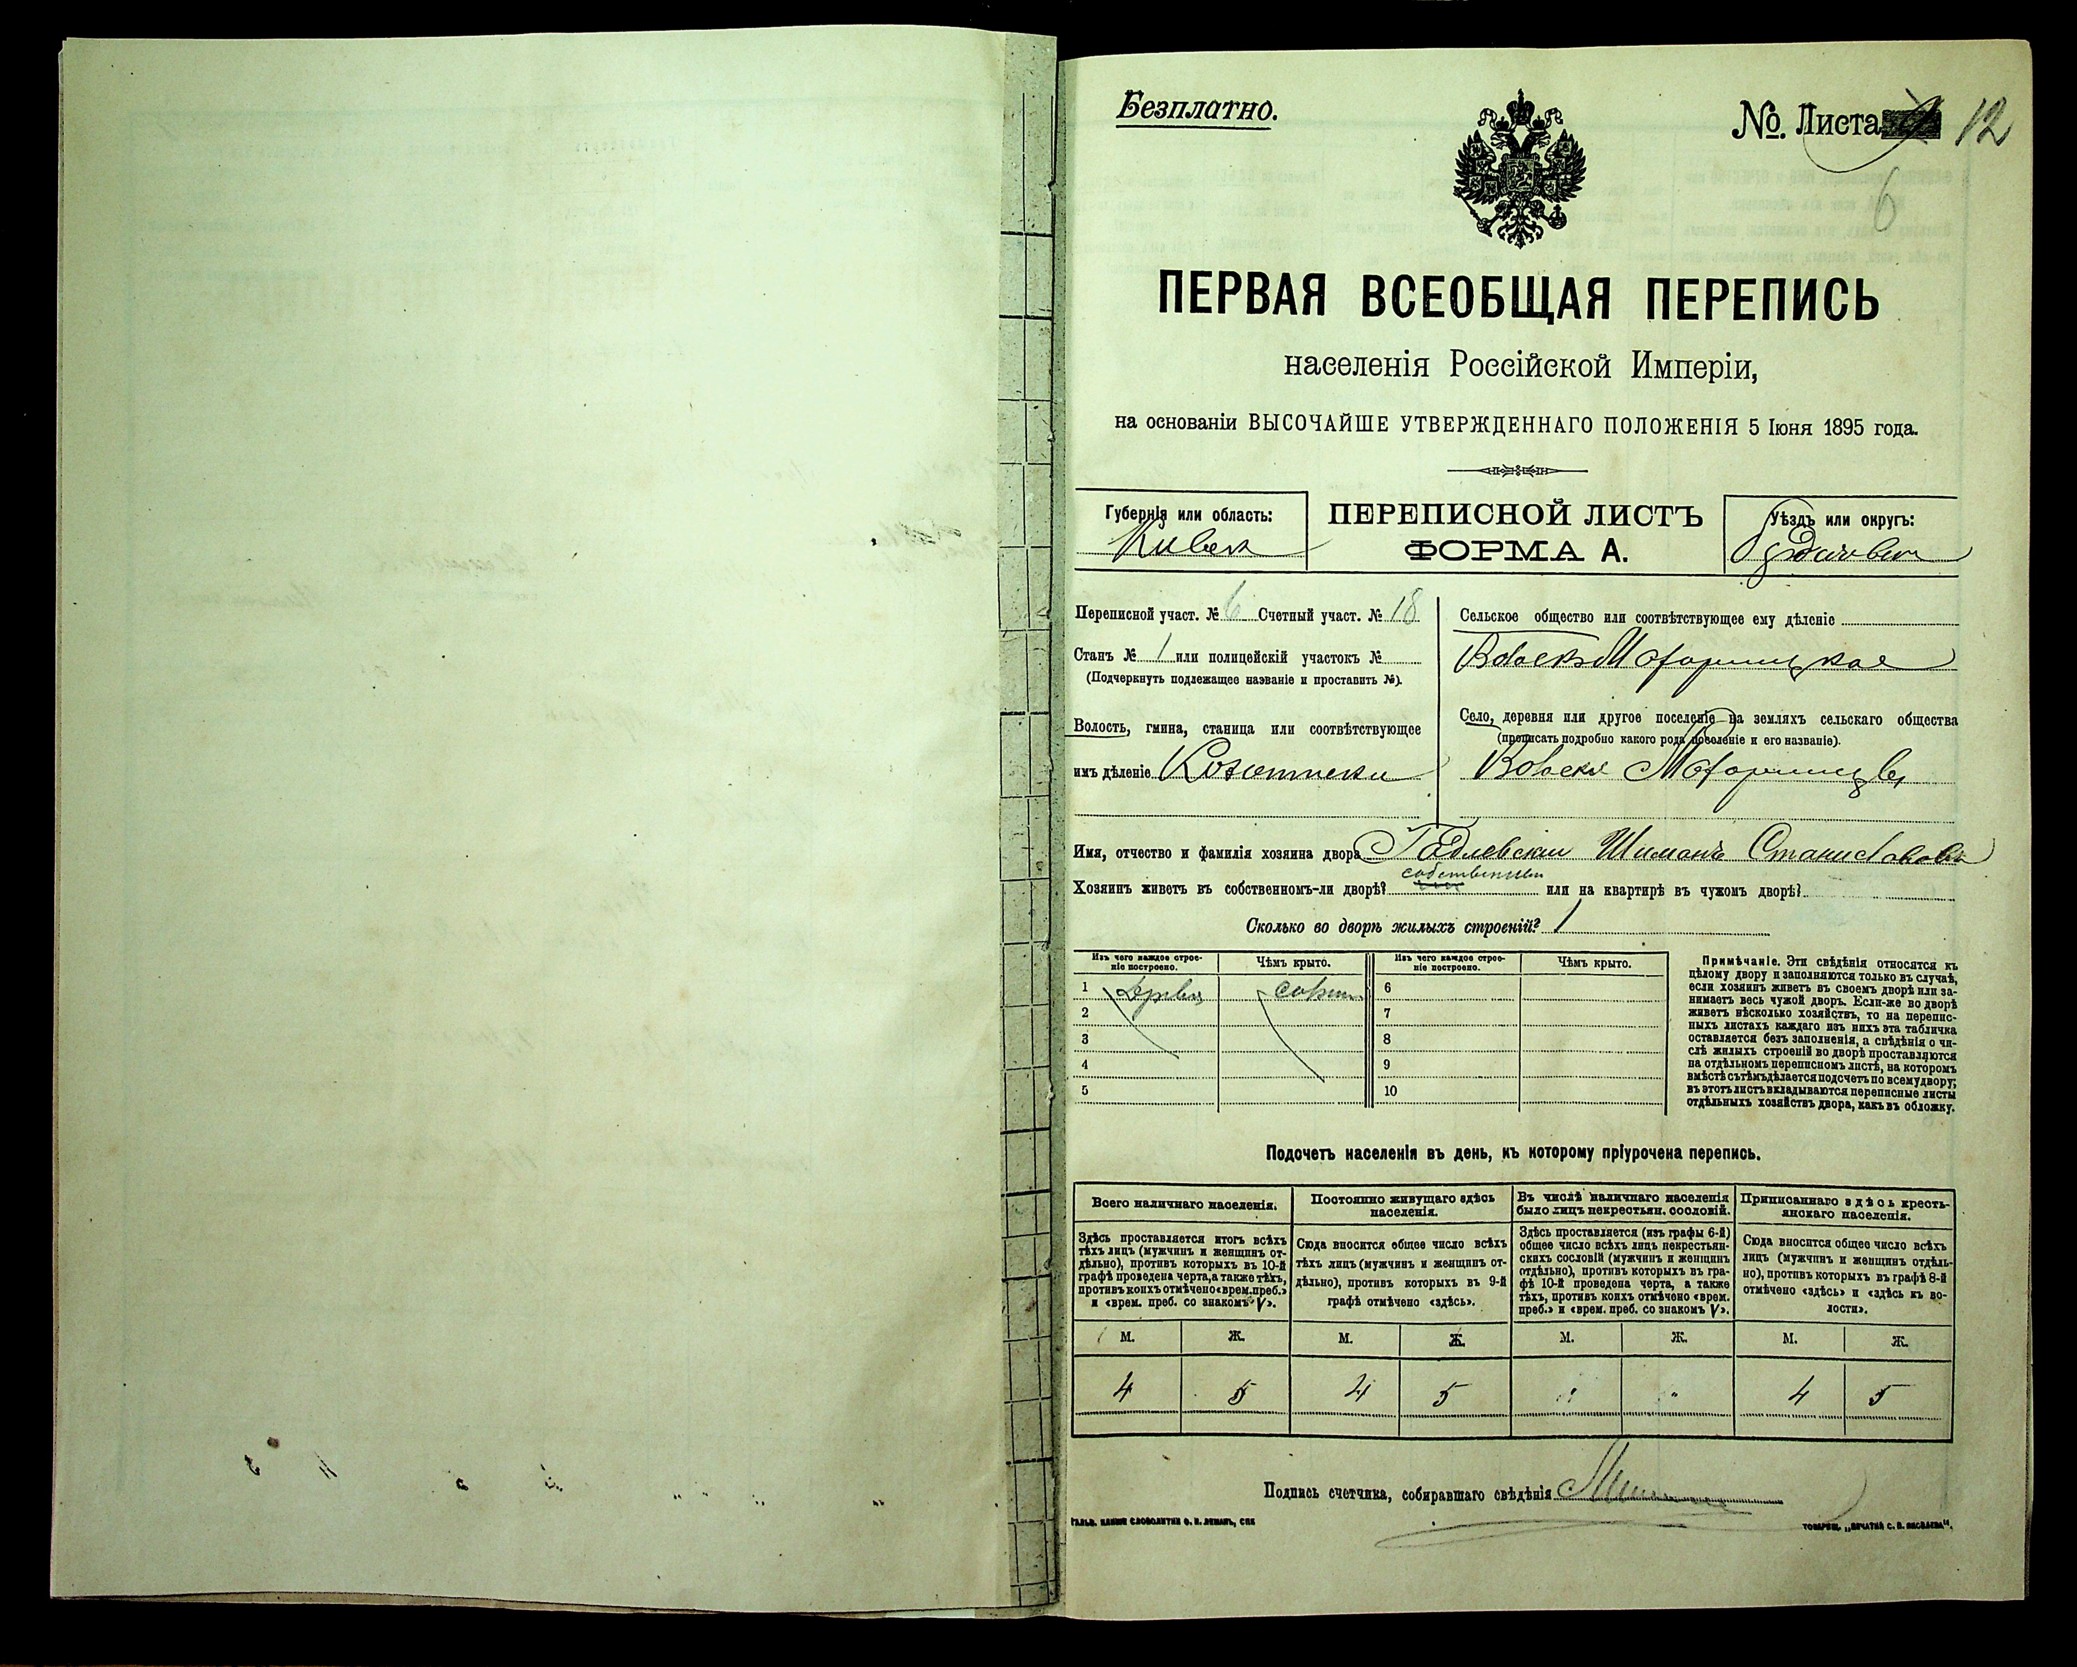 Безплатно.
№ Листа 12
6
ПЕРВАЯ ВСЕОБЩАЯ ПЕРЕПИСЬ
населенія Россійской Имперіи,
на основаніи ВЫСОЧАЙШЕ УТВЕРЖДЕННАГО ПОЛОЖЕНІЯ 5 Іюня 1895 года.
Губернія или область:
Киевск
ПЕРЕПИСНОЙ ЛИСТЪ
ФОРМА А.
Уѣздъ или округъ:
Переписной участ. № 6 Счетный участ. № 18
Станъ № 1 или полицейскій участокъ №
(Подчеркнуть подлежащее названіе и проставить №).
Волость, гмина, станица или соотвѣтствующее
имъ дѣленіе
Сельское общество или соотвѣтствующее ему дѣленіе
Село, деревня или другое поселеніе на земляхъ сельскаго общества
(прописать подробно какого рода поселеніе и его названіе).
Имя, отчество и фамилія хозяина двора Шиманъ Станиславовъ
Хозяинъ живетъ въ собственномъ-ли дворѣ? или на квартирѣ въ чужомъ дворѣ?
Сколько во дворѣ жилыхъ строеній? 1
Изъ чего каждое строе-
ніе построено.
Чѣмъ крыто.
Изъ чего каждое строе-
ніе построено.
Чѣмъ крыто.
1 6
2 7
3 8
4 9
5 10
Примѣчаніе. Эти свѣдѣнія относятся къ
цѣлому двору и заполняются только въ случаѣ,
если хозяинъ живетъ въ своемъ дворѣ или за-
нимаетъ весь чужой дворъ. Если-же во дворѣ
живетъ нѣсколько хозяйствъ, то на перепис-
ныхъ листахъ каждаго изъ нихъ эта табличка
оставляется безъ заполненія, а свѣдѣнія о чи-
слѣ жилыхъ строеній во дворѣ проставляются
на отдѣльномъ переписномъ листѣ, на которомъ
вмѣстѣ съ тѣмъ дѣлается подсчетъ по всему двору;
въ этотъ листъ вкладываются переписные листы
отдѣльныхъ хозяйствъ двора, какъ въ обложку.
Подочетъ населенія въ день, къ которому пріурочена перепись.
Всего наличнаго населенія.
Здѣсь проставляется итогъ всѣхъ
тѣхъ лицъ (мужчинъ и женщинъ от-
дѣльно), противъ которыхъ въ 10-й
графѣ проведена черта, а также тѣхъ,
противъ коихъ отмѣчено «врем. преб.»
и «врем. преб. со знакомъ V».
Постоянно живущаго здѣсь
населенія.
Сюда вносится общее число всѣхъ
тѣхъ лицъ (мужчинъ и женщинъ от-
дѣльно), противъ которыхъ въ 9-й
графѣ отмѣчено «здѣсь».
Въ числѣ наличнаго населенія
было лицъ некрестьян. сословій.
Здѣсь проставляется (изъ графы 6-й)
общее число всѣхъ лицъ некрестьян-
скихъ сословій (мужчинъ и женщинъ
отдѣльно), противъ которыхъ въ гра-
фѣ 10-й проведена черта, а также
тѣхъ, противъ коихъ отмѣчено «врем.
преб.» и «врем. преб. со знакомъ V».
Приписаннаго здѣсь кресть-
янскаго населенія.
Сюда вносится общее число всѣхъ
лицъ (мужчинъ и женщинъ отдѣль-
но), противъ которыхъ въ графѣ 8-й
отмѣчено «здѣсь» и «здѣсь къ во-
лости».
М. Ж. М. Ж. М. Ж. М. Ж.
4 5 4 5 " " 4 5
Подпись счетчика, собиравшаго свѣдѣнія